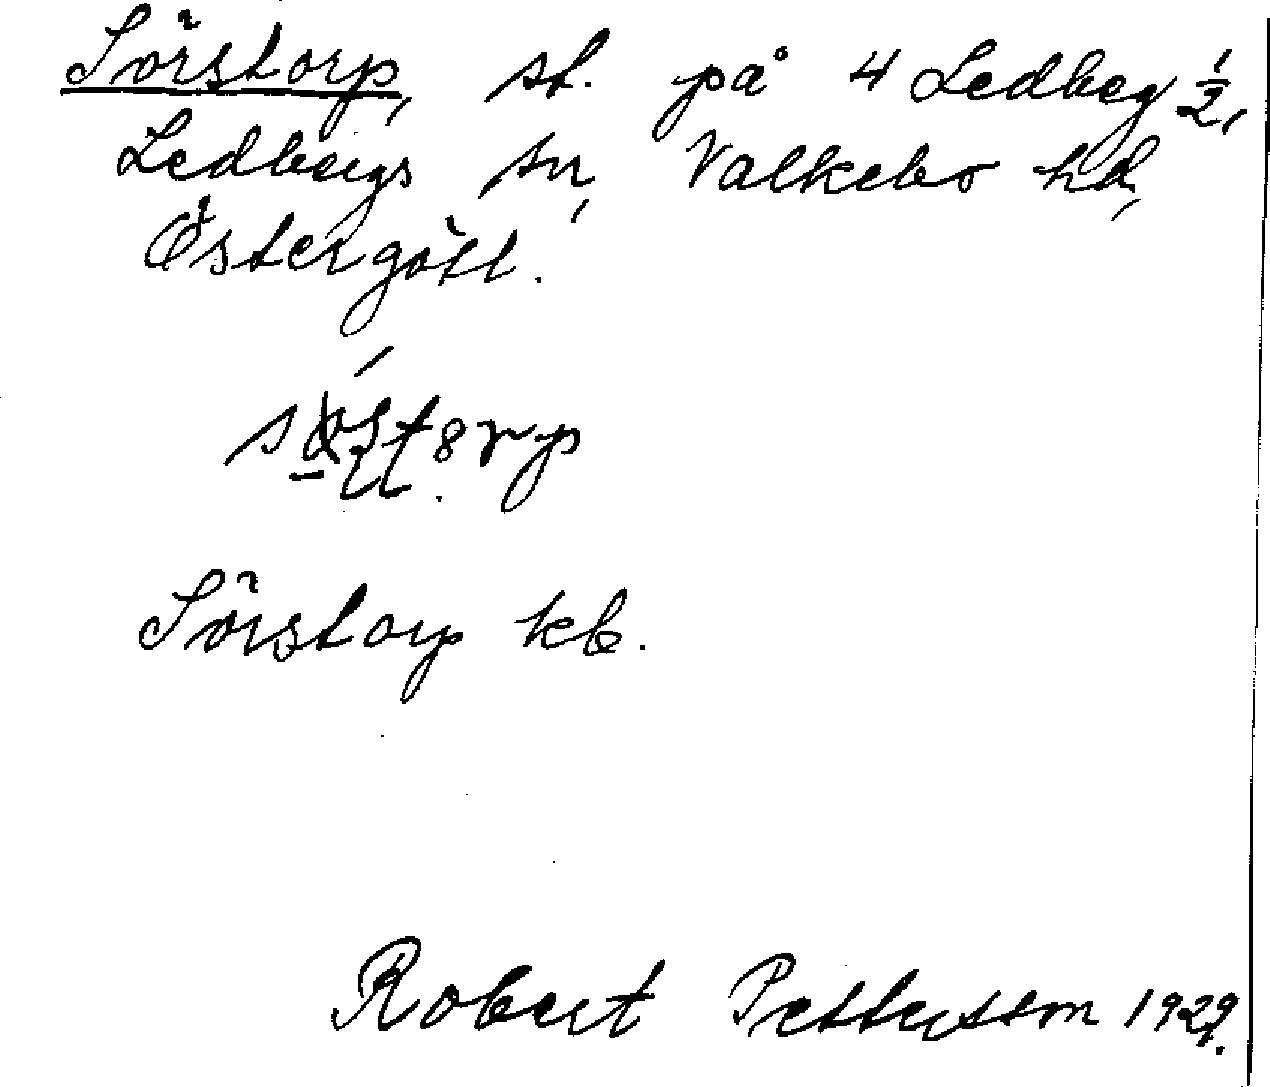 Sörstorp, st. på 4 Ledberg ½,
Ledbergs sn, Valkebo hd,
Östergötl.
Sörstorp kb.
Robert Pettersson 1929.